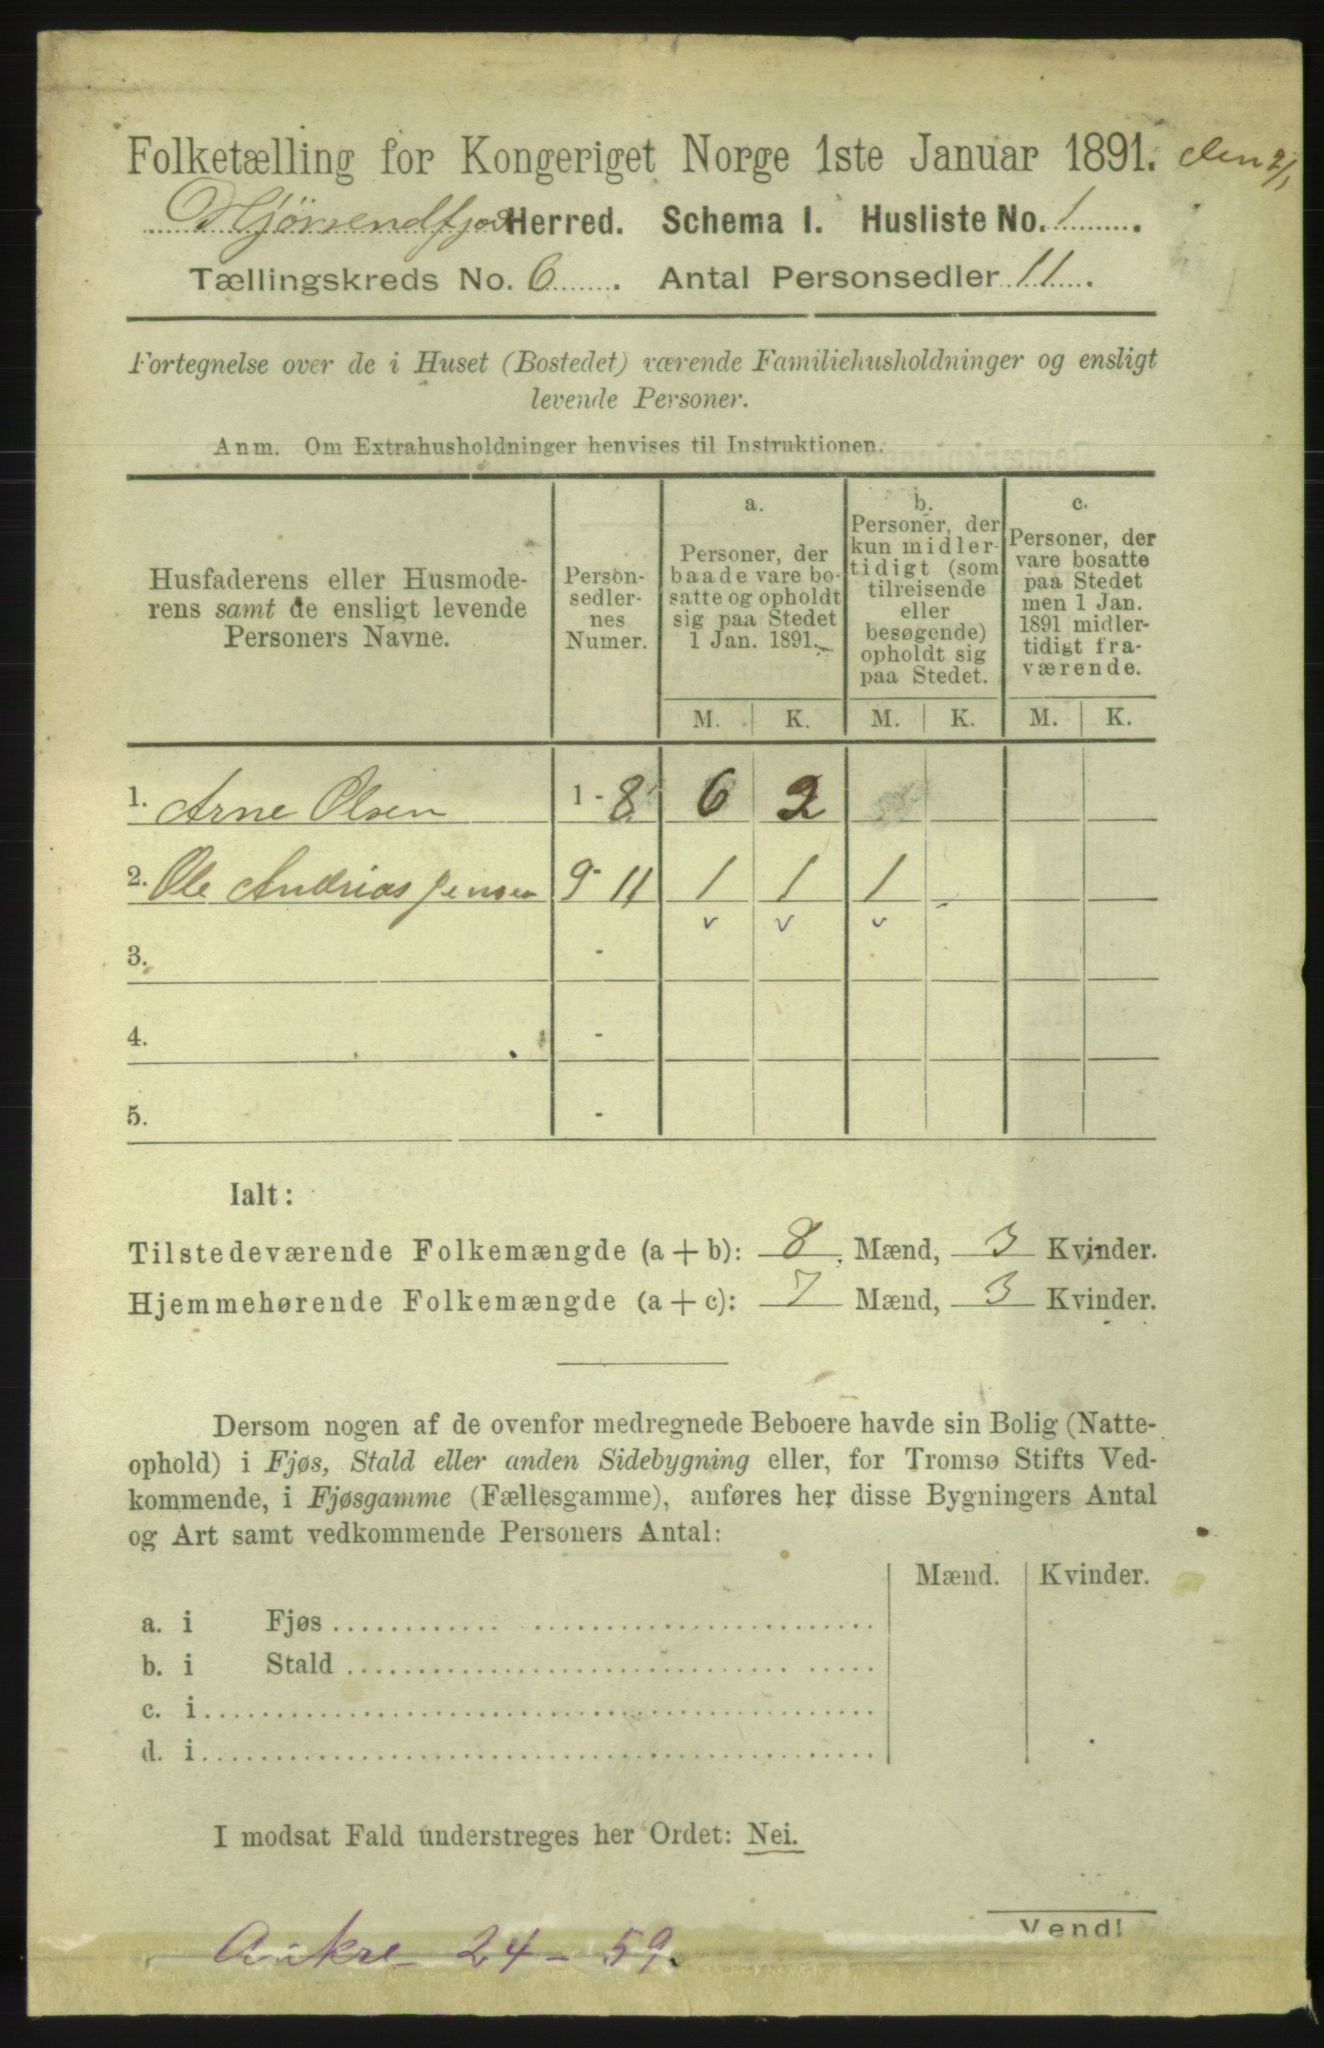 Folketælling for Kongeriget Norge 1ste Januar 1891. den 2/1
Hjørrendfjord Herred. Schema I. Husliste No. 1.
Tællingskreds No. 6. Antal Personsedler 11.
Fortegnelse over de i Huset (Bostedet) værende Familiehusholdninger og ensligt
levende Personer.
Anm. Om Extrahusholdninger henvises til Instruktionen.
Husfaderens eller Husmode-
rens samt de ensligt levende
Personers Navne.
Person-
sedler-
nes
Numer.
a.
Personer, der
baade vare bo-
satte og opholdt
sig paa Stedet
1 Jan. 1891.
b.
Personer, der
kun midler-
tidigt (som
tilreisende
eller
besøgende)
opholdt sig
paa Stedet.
c.
Personer, der
vare bosatte
paa Stedet
men 1 Jan.
1891 midler-
tidigt fra-
værende.
M. K. M. K. M. K.
1. Arne Olsen 1 - 8 6 2
2. Ole Andrias Jensen 9 - 11 1 1 1 -
3. -
4. -
5. -
Ialt:
Tilstedeværende Folkemængde (a + b): 8 Mænd, 3 Kvinder.
Hjemmehørende Folkemængde (a + c): 7 Mænd, 3 Kvinder.
Dersom nogen af de ovenfor medregnede Beboere havde sin Bolig (Natte-
ophold) i Fjøs, Stald eller anden Sidebygning eller, for Tromsø Stifts Ved-
kommende, i Fjøsgamme (Fællesgamme), anføres her disse Bygningers Antal
og Art samt vedkommende Personers Antal:
Mænd. Kvinder.
a. i Fjøs
b. i Stald
c. i
d. i
I modsat Fald understreges her Ordet: Nei.
Vend!
24 - 59.